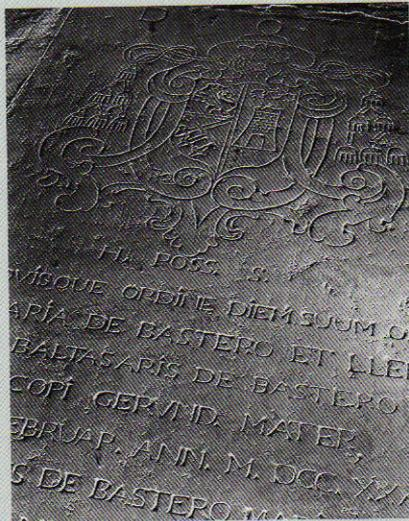 D
HIC POSS. S. V
QVISQUE ORDINE DIEM SUUM O
ARIA DE BASTERO ET LLE
BALTASARIS DE BASTERO
COPI GERVND. MATER,
EBRUAR. ANN. M. DCC. XX
S DE BASTERO